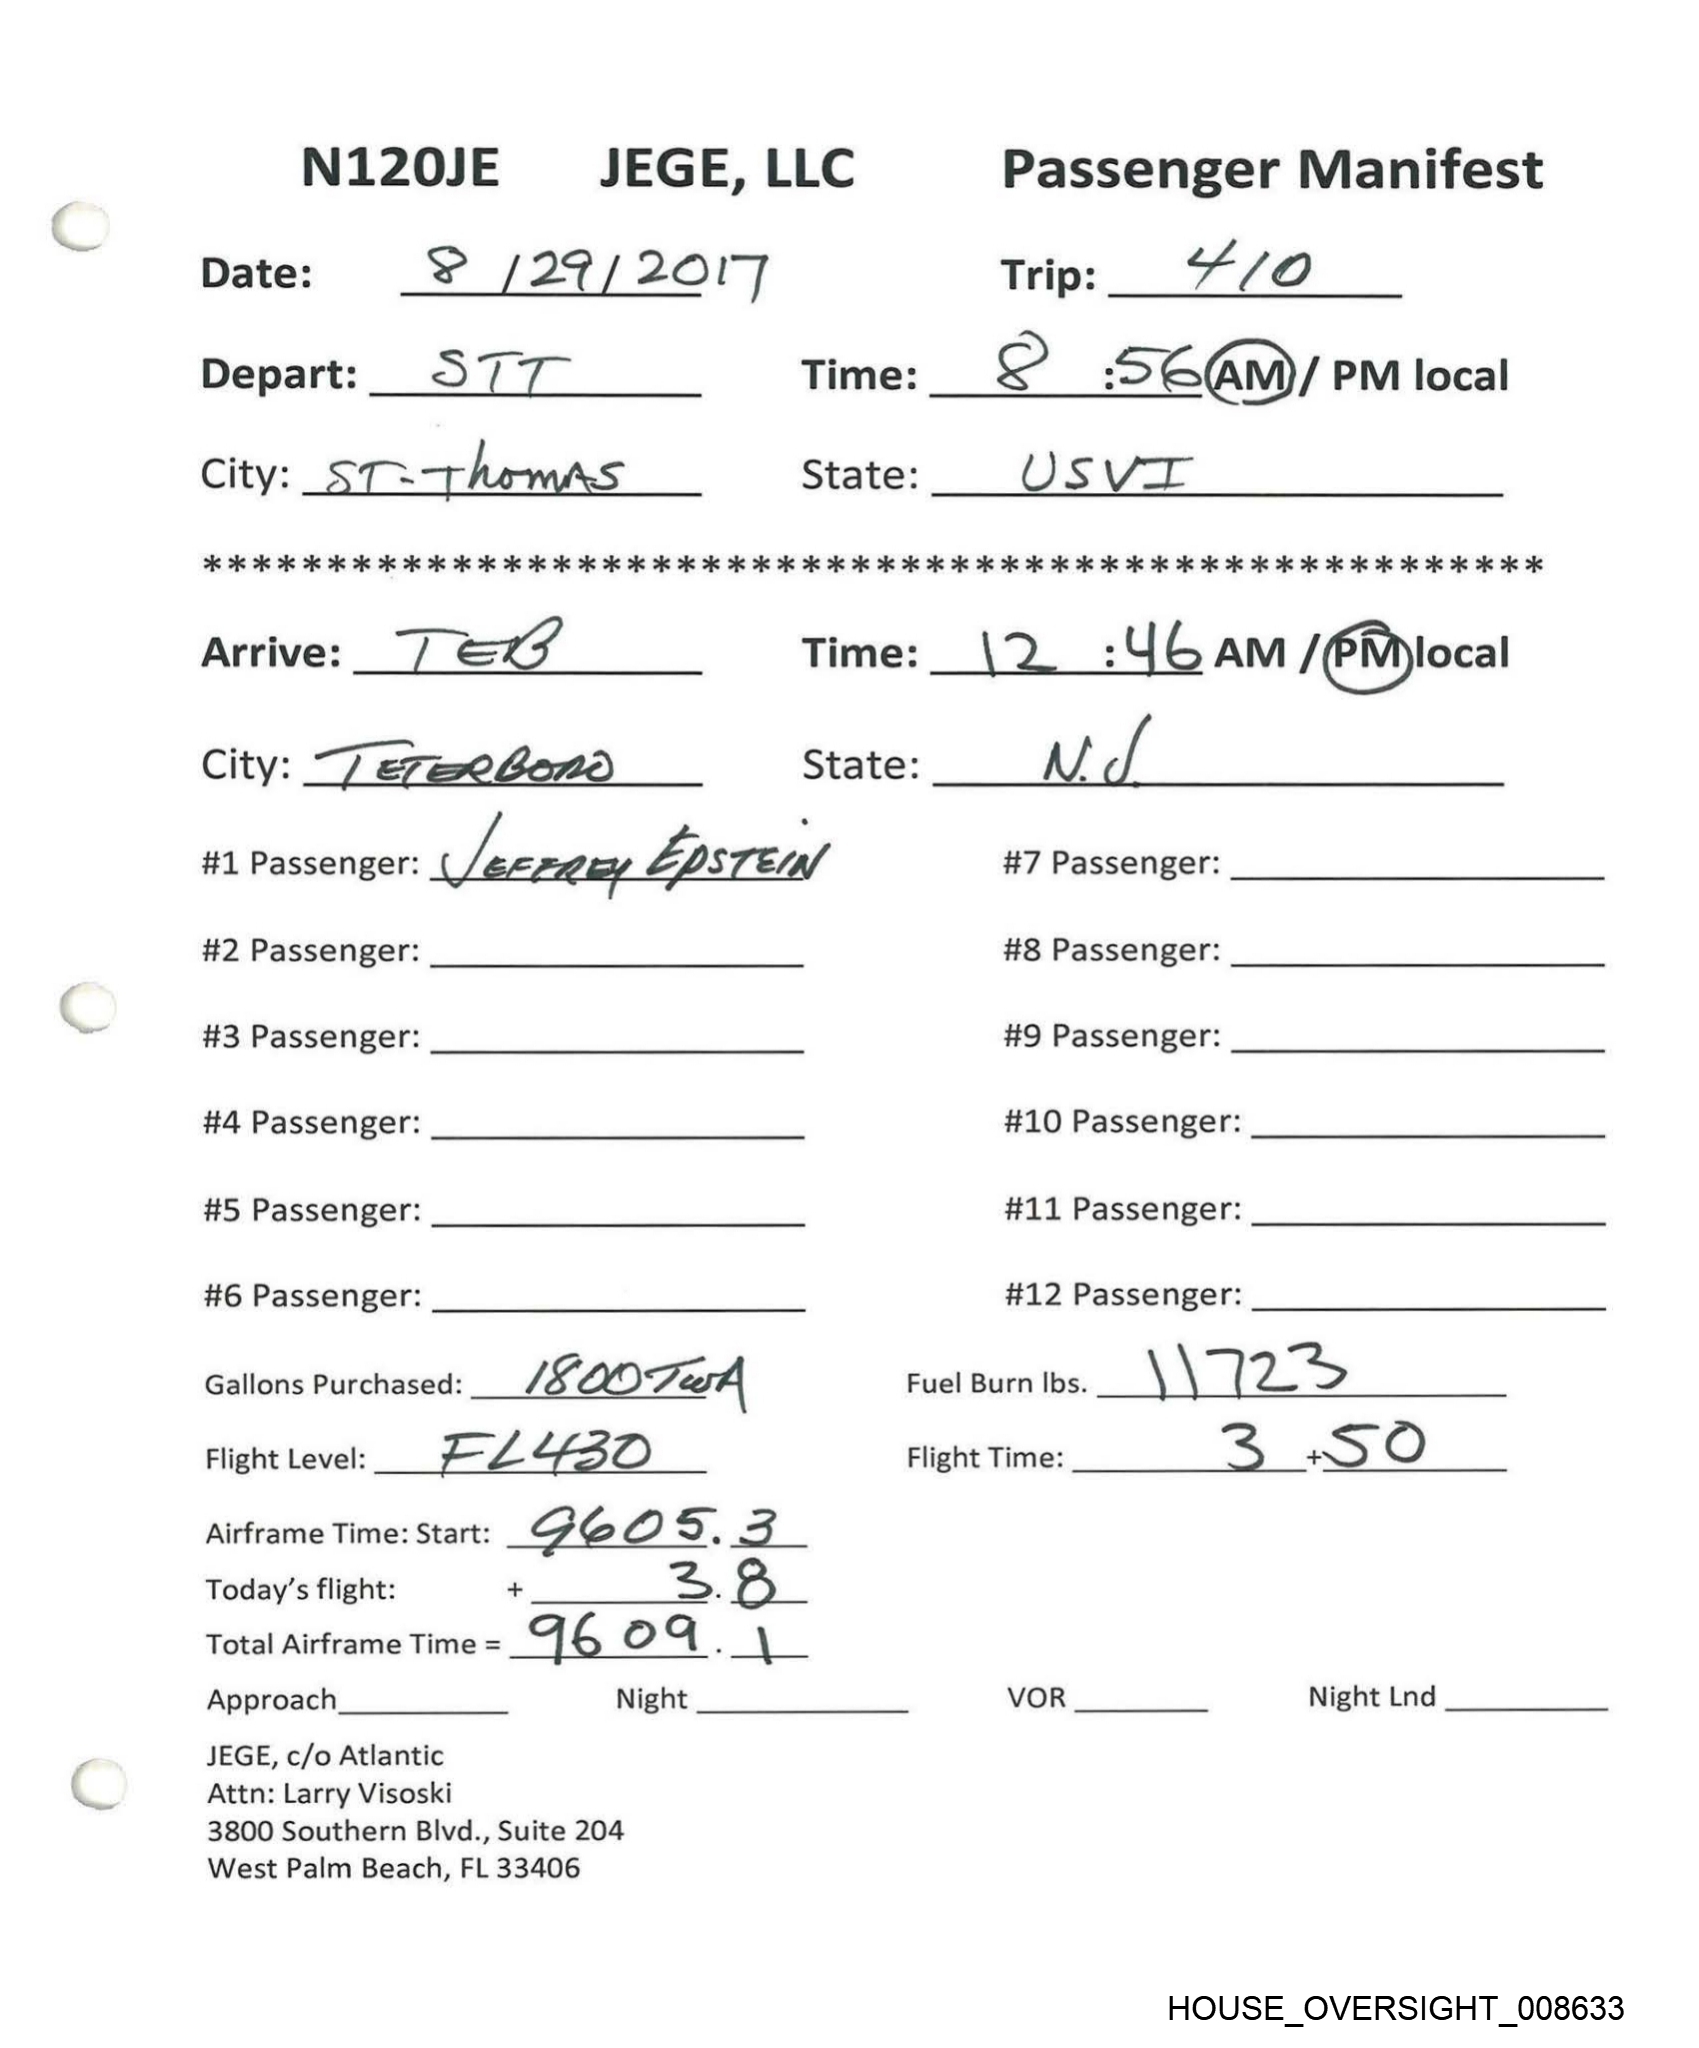 N120JE JEGE, LLC Passenger Manifest
Date: 8/29/2017 Trip: 410
Depart: STT Time: 8:56 AM / PM local
City: ST-Thomas State: USVI
******************************************************
Arrive: TEB Time: 12:46 AM / PM local
City: TETERBORO State: N.J.
#1 Passenger: JEFFREY EPSTEIN #7 Passenger:
#2 Passenger: #8 Passenger:
#3 Passenger: #9 Passenger:
#4 Passenger: #10 Passenger:
#5 Passenger: #11 Passenger:
#6 Passenger: #12 Passenger:
Gallons Purchased: 1800 TWA Fuel Burn lbs. 11723
Flight Level: FL430 Flight Time: 3 +50
Airframe Time: Start: 9605.3
Today's flight: + 3.8
Total Airframe Time = 9609.1
Approach Night VOR Night Lnd
JEGE, c/o Atlantic
Attn: Larry Visoski
3800 Southern Blvd., Suite 204
West Palm Beach, FL 33406
HOUSE_OVERSIGHT_008633